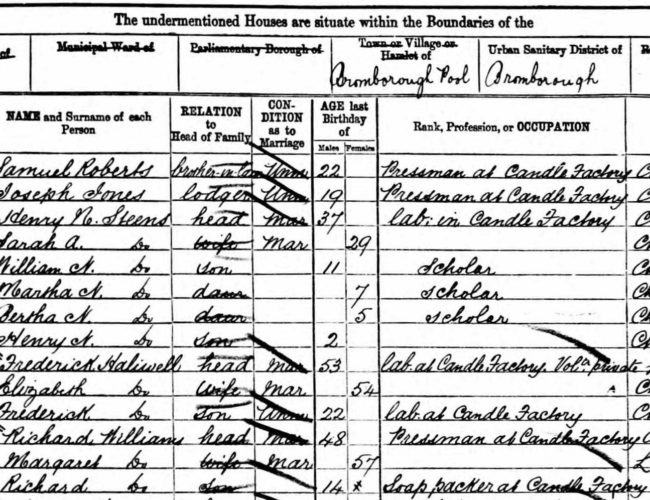 The undermentioned Houses are situate within the Boundaries of the
of Municipal Ward of Parliamentary Borough of Town or Village or Hamlet of Urban Sanitary District of
Bromborough Pool Bromborough
NAME and Surname of each Person RELATION to Head of Family CONDITION as to Marriage AGE last Birthday of Males Females Rank, Profession, or OCCUPATION
Samuel Roberts brother-in-law Unm 22 Pressman at Candle Factory
Joseph Jones lodger Unm 19 Pressman at Candle Factory
Henry N. Steens head Mar 37 lab: in Candle Factory
Sarah A. Do wife Mar 29
William N. Do son 11 Scholar
Martha N. Do daur 7 scholar
Bertha N. Do daur 5 scholar
Henry N. Do son 2
Frederick Haliwell head Mar 53 lab. at Candle Factory. Vol. private
Elizabeth Do Wife Mar 54
Frederick Do Son Unm 22 lab. at Candle Factory
Richard Williams head Mar 48 Pressman at Candle Factory
Margaret Do wife Mar 57
Richard Do son 14 Soap packer at Candle Factory